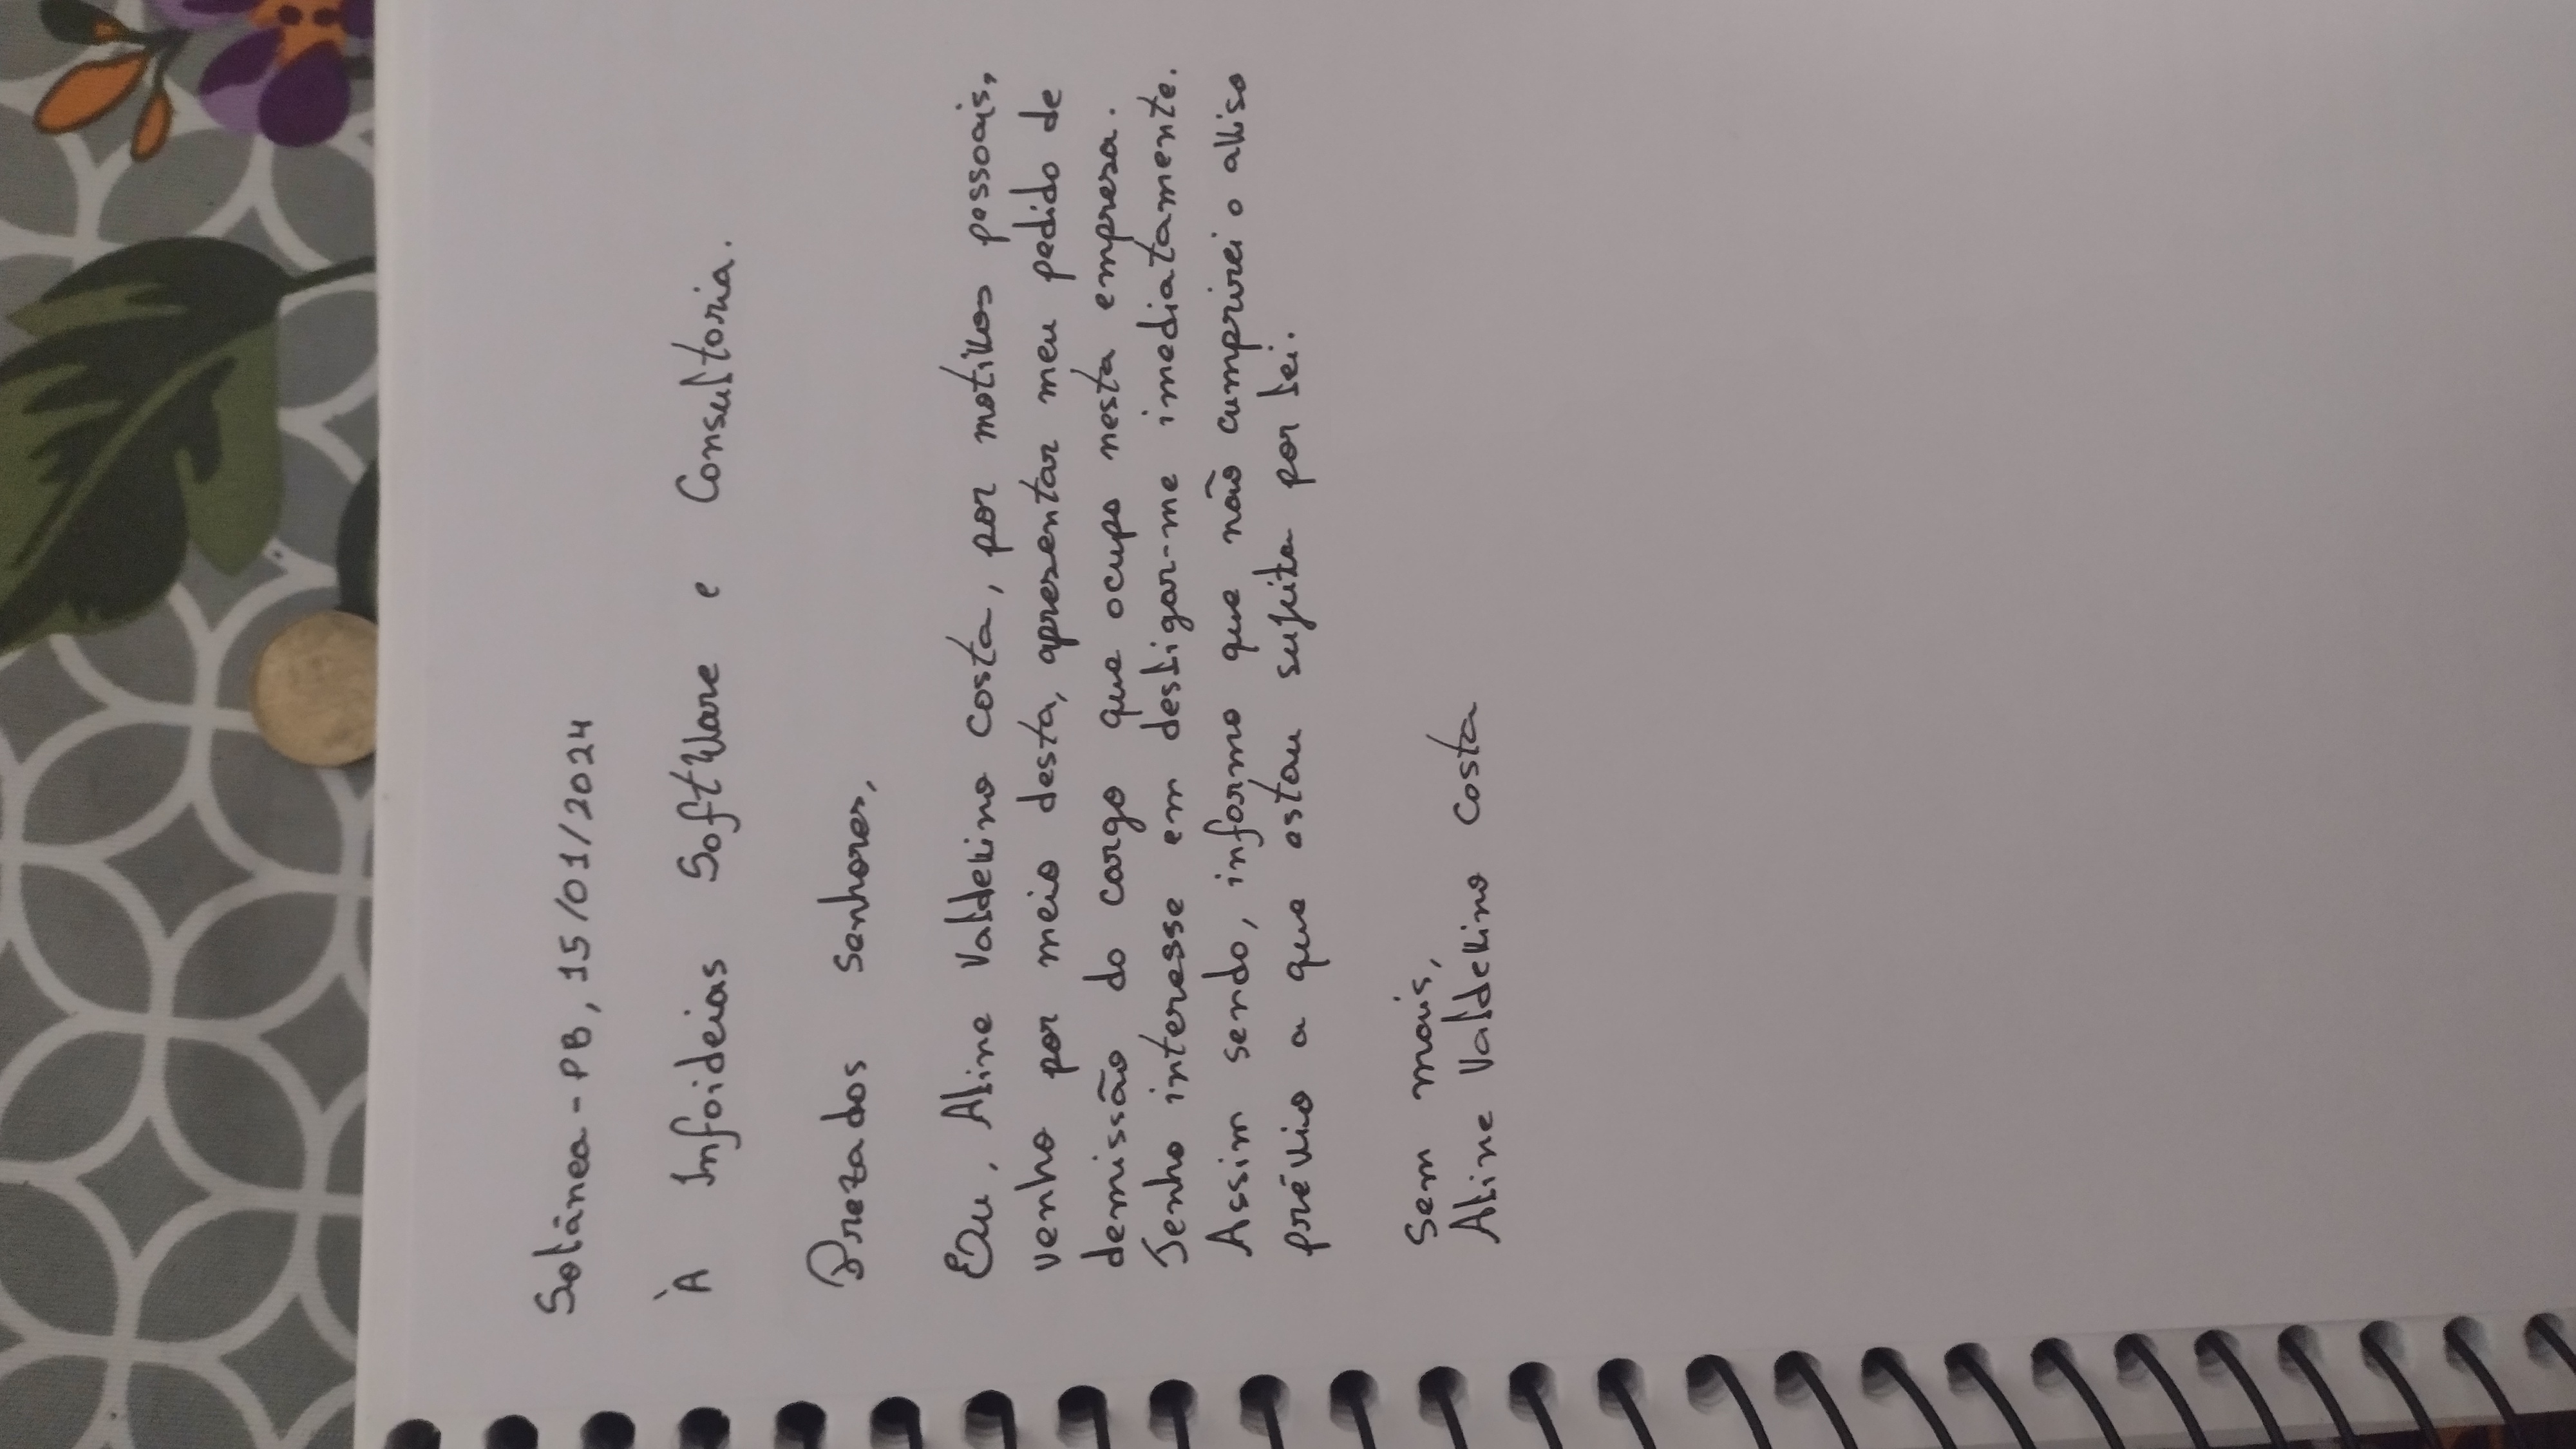 Solânea - PB, 15/01/2024
À Infoideias Software e Consultoria.
Prezados senhores,
Eu, Aline Valdevino costa, por motivos pessoais,
venho por meio desta, apresentar meu pedido de
demissão do cargo que ocupo nesta empresa.
Tenho interesse em desligar-me imediatamente.
Assim sendo, informo que não cumprirei o aviso
prévio a que estou sujeita por lei.
Sem mais,
Aline Valdevino Costa